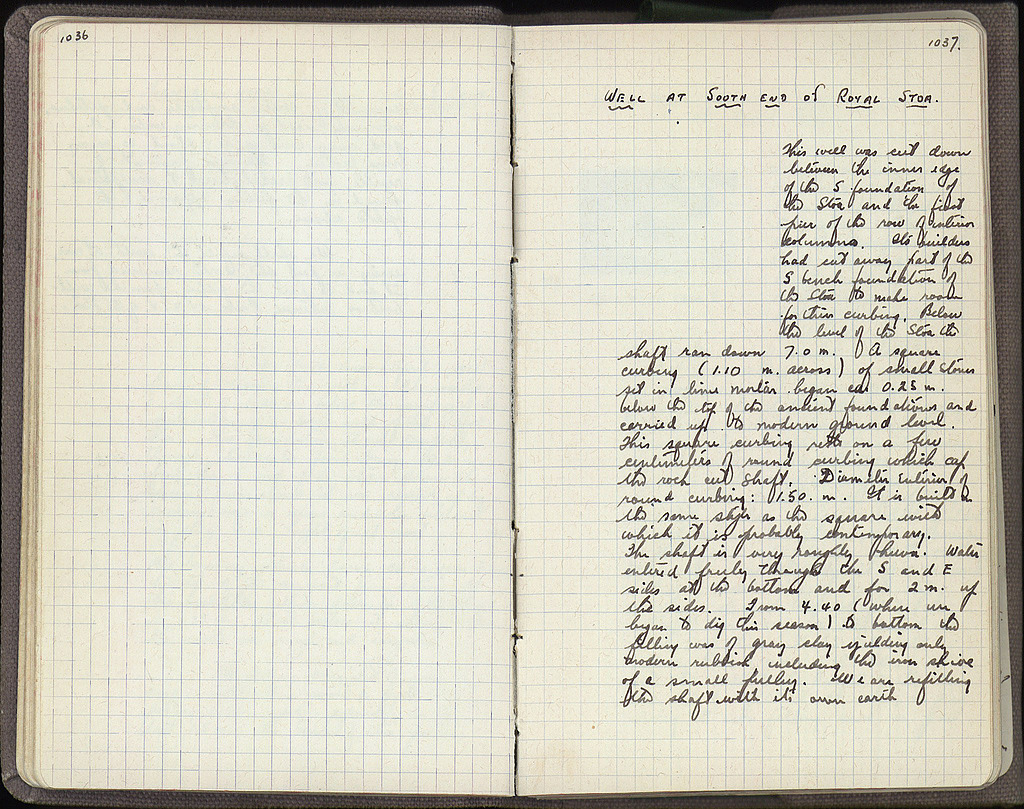 1036
1037.
WELL AT SOUTH END of ROYAL STOA.
This well was cut down
between the inner edge
of the S foundation of
the Stoa and the first
pier of the row of interior
columns. Its builders
had cut away part of the
S bench foundation of
the Stoa to make room
for their curbing. Below
the level of the Stoa the
shaft ran down 7.0 m. A square
curbing (1.10 m. across) of small stones
set in lime mortar began ca 0.25 m.
below the top of the ancient foundations and
carried up to modern ground level.
This square curbing rests on a few
centimeters of round curbing which cap
the rock cut shaft. Diameter interior of
round curbing: 1.50. m. It is built in
the same style as the square with
which it is probably contemporary.
The shaft is very roughly hewn. Water
entered freely through the S and E
sides at the bottom and for 2 m. up
the sides. From 4.40 (where we
began to dig this season) to bottom the
filling was of gray clay yielding only
modern rubbish including the iron
of a small pulley. We are refilling
the shaft with its own earth